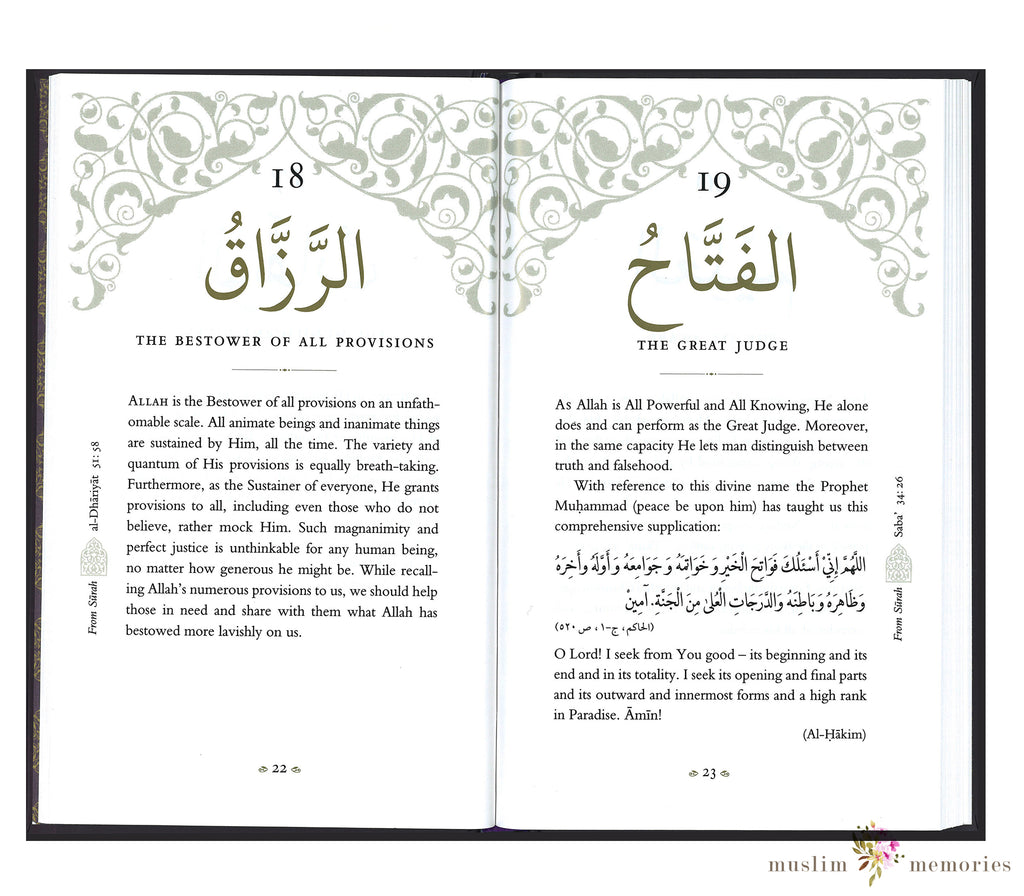 18
الرَّزَّاقُ
THE BESTOWER OF ALL PROVISIONS
ALLAH is the Bestower of all provisions on an unfath-
omable scale. All animate beings and inanimate things
are sustained by Him, all the time. The variety and
quantum of His provisions is equally breath-taking.
Furthermore, as the Sustainer of everyone, He grants
provisions to all, including even those who do not
believe, rather mock Him. Such magnanimity and
perfect justice is unthinkable for any human being,
no matter how generous he might be. While recall-
ing Allah's numerous provisions to us, we should help
those in need and share with them what Allah has
bestowed more lavishly on us.
From Sūrah al-Dhāriyāt 51: 58
22
19
الفَتَّاحُ
THE GREAT JUDGE
As Allah is All Powerful and All Knowing, He alone
does and can perform as the Great Judge. Moreover,
in the same capacity He lets man distinguish between
truth and falsehood.
With reference to this divine name the Prophet
Muḥammad (peace be upon him) has taught us this
comprehensive supplication:
اللَّهُمَّ إِنِّيْ أَسْئَلُكَ فَوَاتِحَ الْخَيْرِ وَخَوَاتِمَهُ وَجَوَامِعَهُ وَأَوَّلَهُ وَأٰخِرَهُ
وَظَاهِرَهُ وَبَاطِنَهُ وَالدَّرَجَاتِ الْعُلىٰ مِنَ الْجَنَّةِ. آمِيْنْ
(الحاكم، ج-١، ص ٥٢٠)
O Lord! I seek from You good – its beginning and its
end and in its totality. I seek its opening and final parts
and its outward and innermost forms and a high rank
in Paradise. Āmīn!
(Al-Ḥākim)
From Sūrah Saba' 34: 26
23
muslim memories